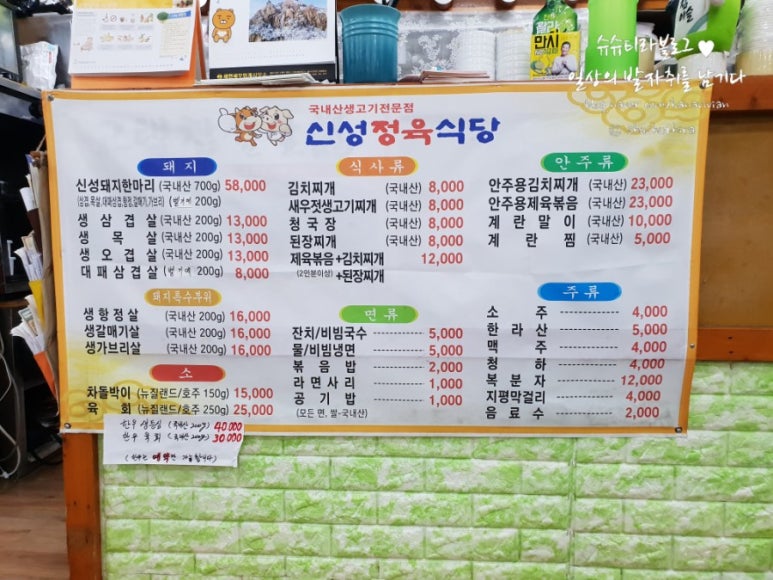 슈슈티라블로그♥
일상의 발자취를 남기다
국내산생고기전문점
신성정육식당
돼지
신성돼지한마리 (국내산 700g) 58,000
(삼겹, 목살, 대패삼겹, 항정, 갈매기, 가브리) (벨기에 200g)
생삼겹살 (국내산 200g) 13,000
생목살 (국내산 200g) 13,000
생오겹살 (국내산 200g) 13,000
대패삼겹살 (벨기에 200g) 8,000
돼지특수부위
생항정살 (국내산 200g) 16,000
생갈매기살 (국내산 200g) 16,000
생가브리살 (국내산 200g) 16,000
소
차돌박이 (뉴질랜드/호주 150g) 15,000
육회 (뉴질랜드/호주 250g) 25,000
한우 생등심 (국내산 200g) 40,000
한우 육회 (국내산 200g) 30,000
(한우는 예약만 가능합니다)
식사류
김치찌개 (국내산) 8,000
새우젓생고기찌개 (국내산) 8,000
청국장 (국내산) 8,000
된장찌개 (국내산) 8,000
제육볶음+김치찌개 12,000
(2인분이상) +된장찌개
면류
잔치/비빔국수 5,000
물/비빔냉면 5,000
볶음밥 2,000
라면사리 1,000
공기밥 1,000
(모든 면, 쌀-국내산)
안주류
안주용김치찌개 (국내산) 23,000
안주용제육볶음 (국내산) 23,000
계란말이 (국내산) 10,000
계란찜 (국내산) 5,000
주류
소주 4,000
한라산 5,000
맥주 4,000
청하 4,000
복분자 12,000
지평막걸리 4,000
음료수 2,000